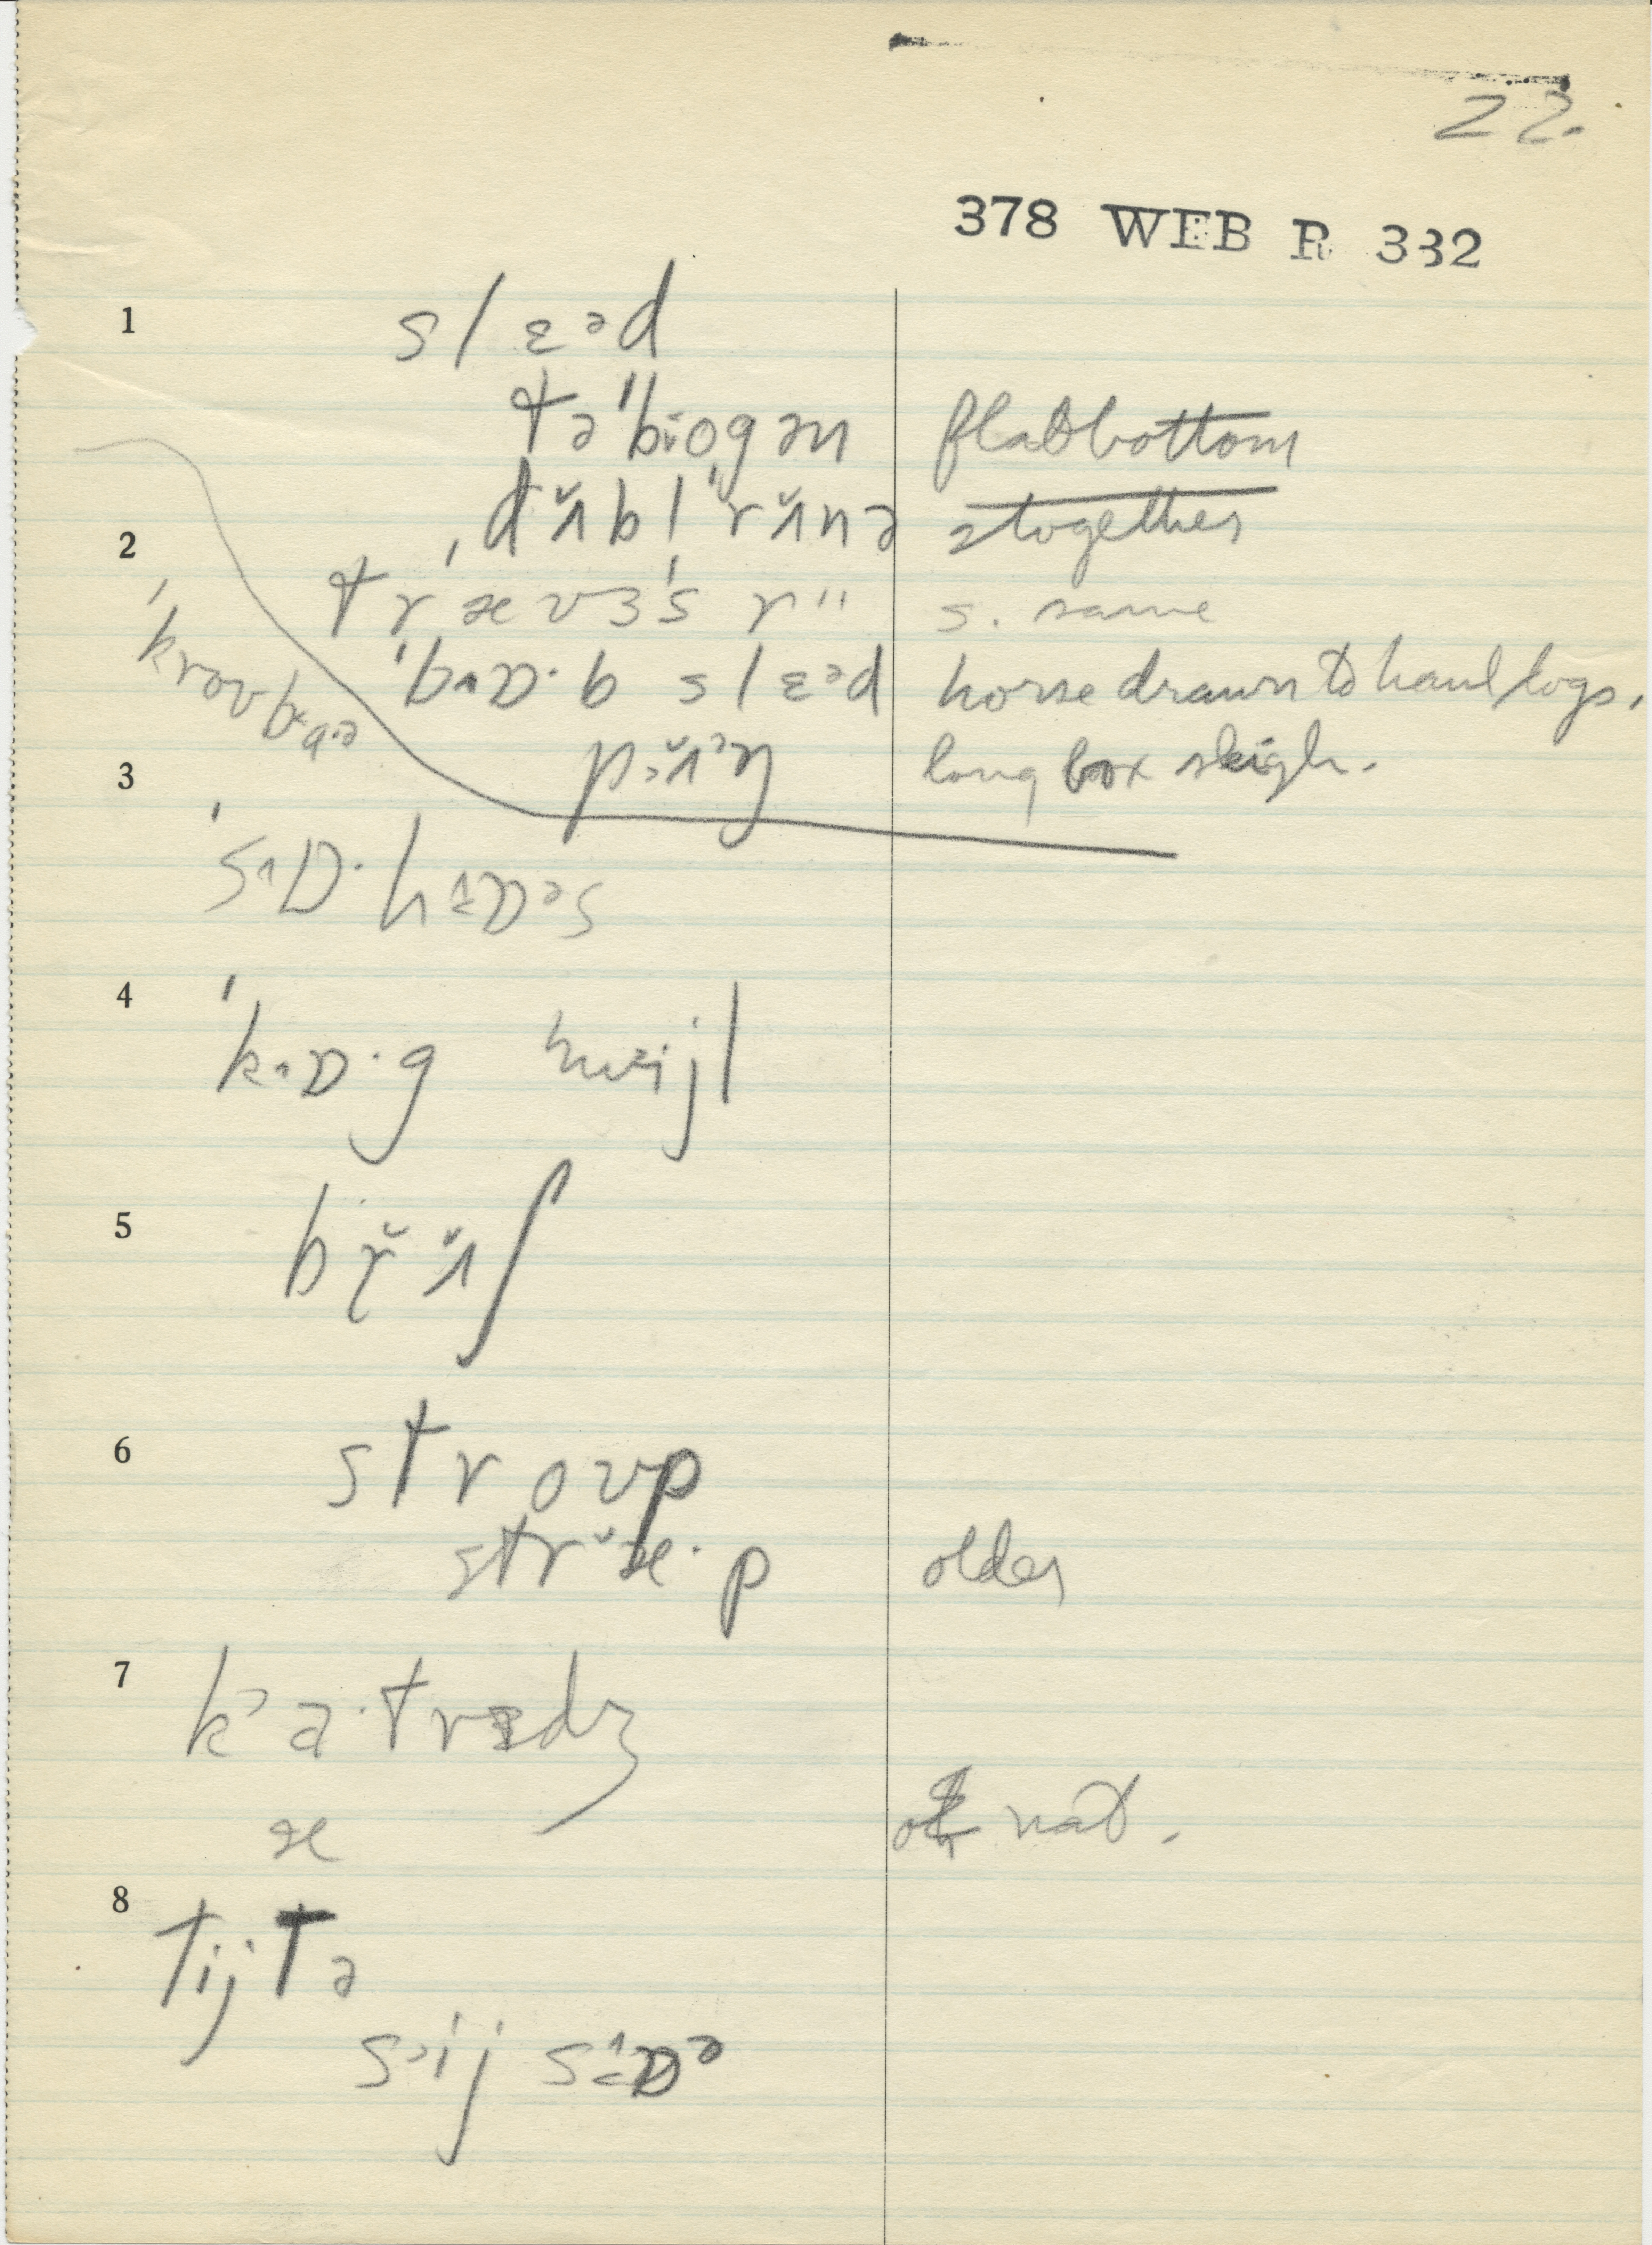 22.
378 WEB R 332
1 slɛᵊd
təˈbiogən flatbottom
ˌdʌ̆blˈrʌ̆nə 2 together
2 trævɜˈs r" s. same
ˈbɒ·b slɛᵊd horse drawn to haul logs.
3 pʌ̆ŋ long box sleigh.
ˈsɒ·hɒəs
4 ˈkɒ·g hwijl
5 br̆ʌ̆ʃ
6 stroʊp
stræ·p older
7 ka·trɪdʒ
æ nat.
8 tijtə
sij sɒə